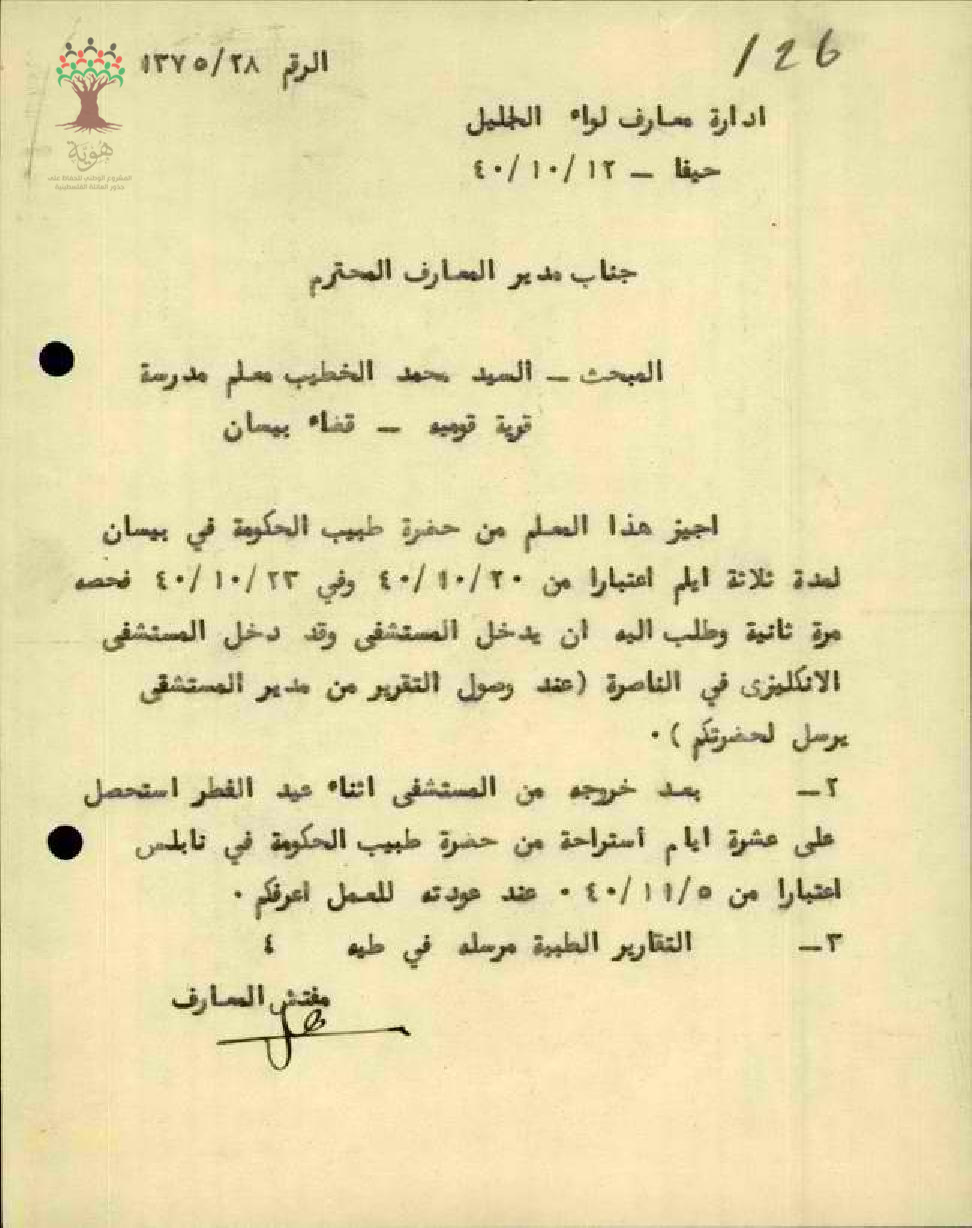 126
الرقم ١٣٧٥/٢٨
هُوِيَّة
المشروع الوطني للحفاظ على
جذور العائلة الفلسطينية
ادارة معارف لواء الجليل
حيفا – ٤٠/١٠/١٢
جناب مدير المعارف المحترم
المبحث – السيد محمد الخطيب معلم مدرسة
قرية قوميه – قضاء بيسان
اجيز هذا المعلم من حضرة طبيب الحكومة في بيسان
لمدة ثلاثة ايلم اعتبارا من ٤٠/١٠/٢٠ وفي ٤٠/١٠/٢٣ فحصه
مرة ثانية وطلب اليه ان يدخل المستشفى وقد دخل المستشفى
الانكليزى في الناصرة (عند وصول التقرير من مدير المستشفى
يرسل لحضرتكم) ٠
٢– بعد خروجه من المستشفى اثناء عيد الفطر استحصل
على عشرة ايام استراحة من حضرة طبيب الحكومة في نابلس
اعتبارا من ٤٠/١١/٥ ٠ عند عودته للعمل اعرفكم ٠
٣– التقارير الطبية مرسله في طيه ٤
مفتش المعارف